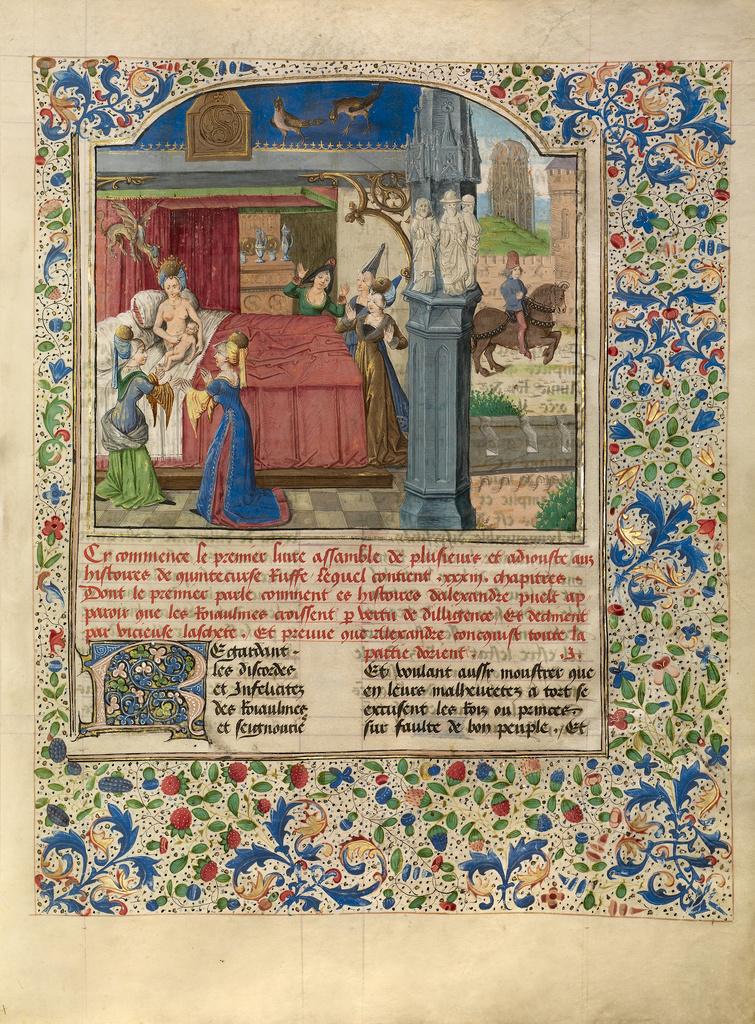 Cy commence le premier liure assamble de plusieurs et adiouste aux
histoires de quintecurse Ruffe. Lequel contient .xxxiij. chapitres
Dont le premier parle comment es histoires dalexandre puelt ap-
paroir que les Roiaulmes croissent p vertu de dilligence. Et declinent
par vicieuse laschete. Et preuue que alexandre concquist toute la
partie dorient .j.
REgardant
les discordes
et Infelicitez
des Roiaulmes
et seignourie
Et voulant aussi moustrer que
en leurs malheuretez a tort se
excusent les Roiz ou princes
sur faulte de bon peuple. Et